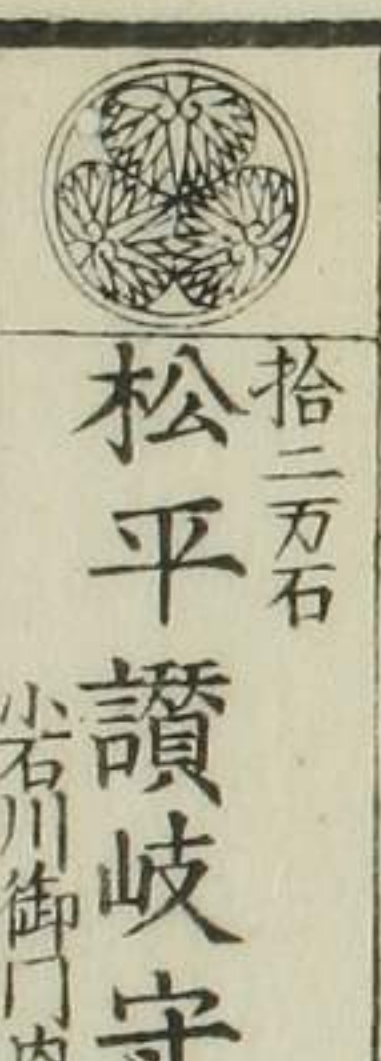 拾二万石
松平讃岐守
小石川御門内